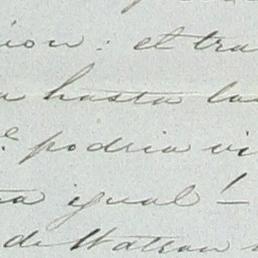 ion: et tra
a hasta la
podria vi
a igual! -
de Watson